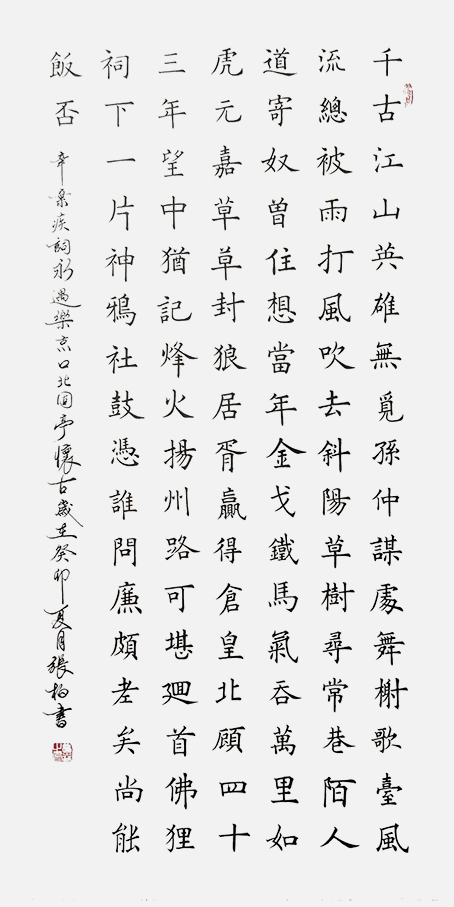 千古江山英雄無覓孫仲謀處舞榭歌臺風
流總被雨打風吹去斜陽草樹尋常巷陌人
道寄奴曾住想當年金戈鐵馬氣吞萬里如
虎元嘉草草封狼居胥贏得倉皇北顧四十
三年望中猶記烽火揚州路可堪迴首佛狸
祠下一片神鴉社鼓憑誰問廉頗老矣尚能
飯否
辛棄疾詞永遇樂京口北固亭懷古歲在癸卯夏月張柏書